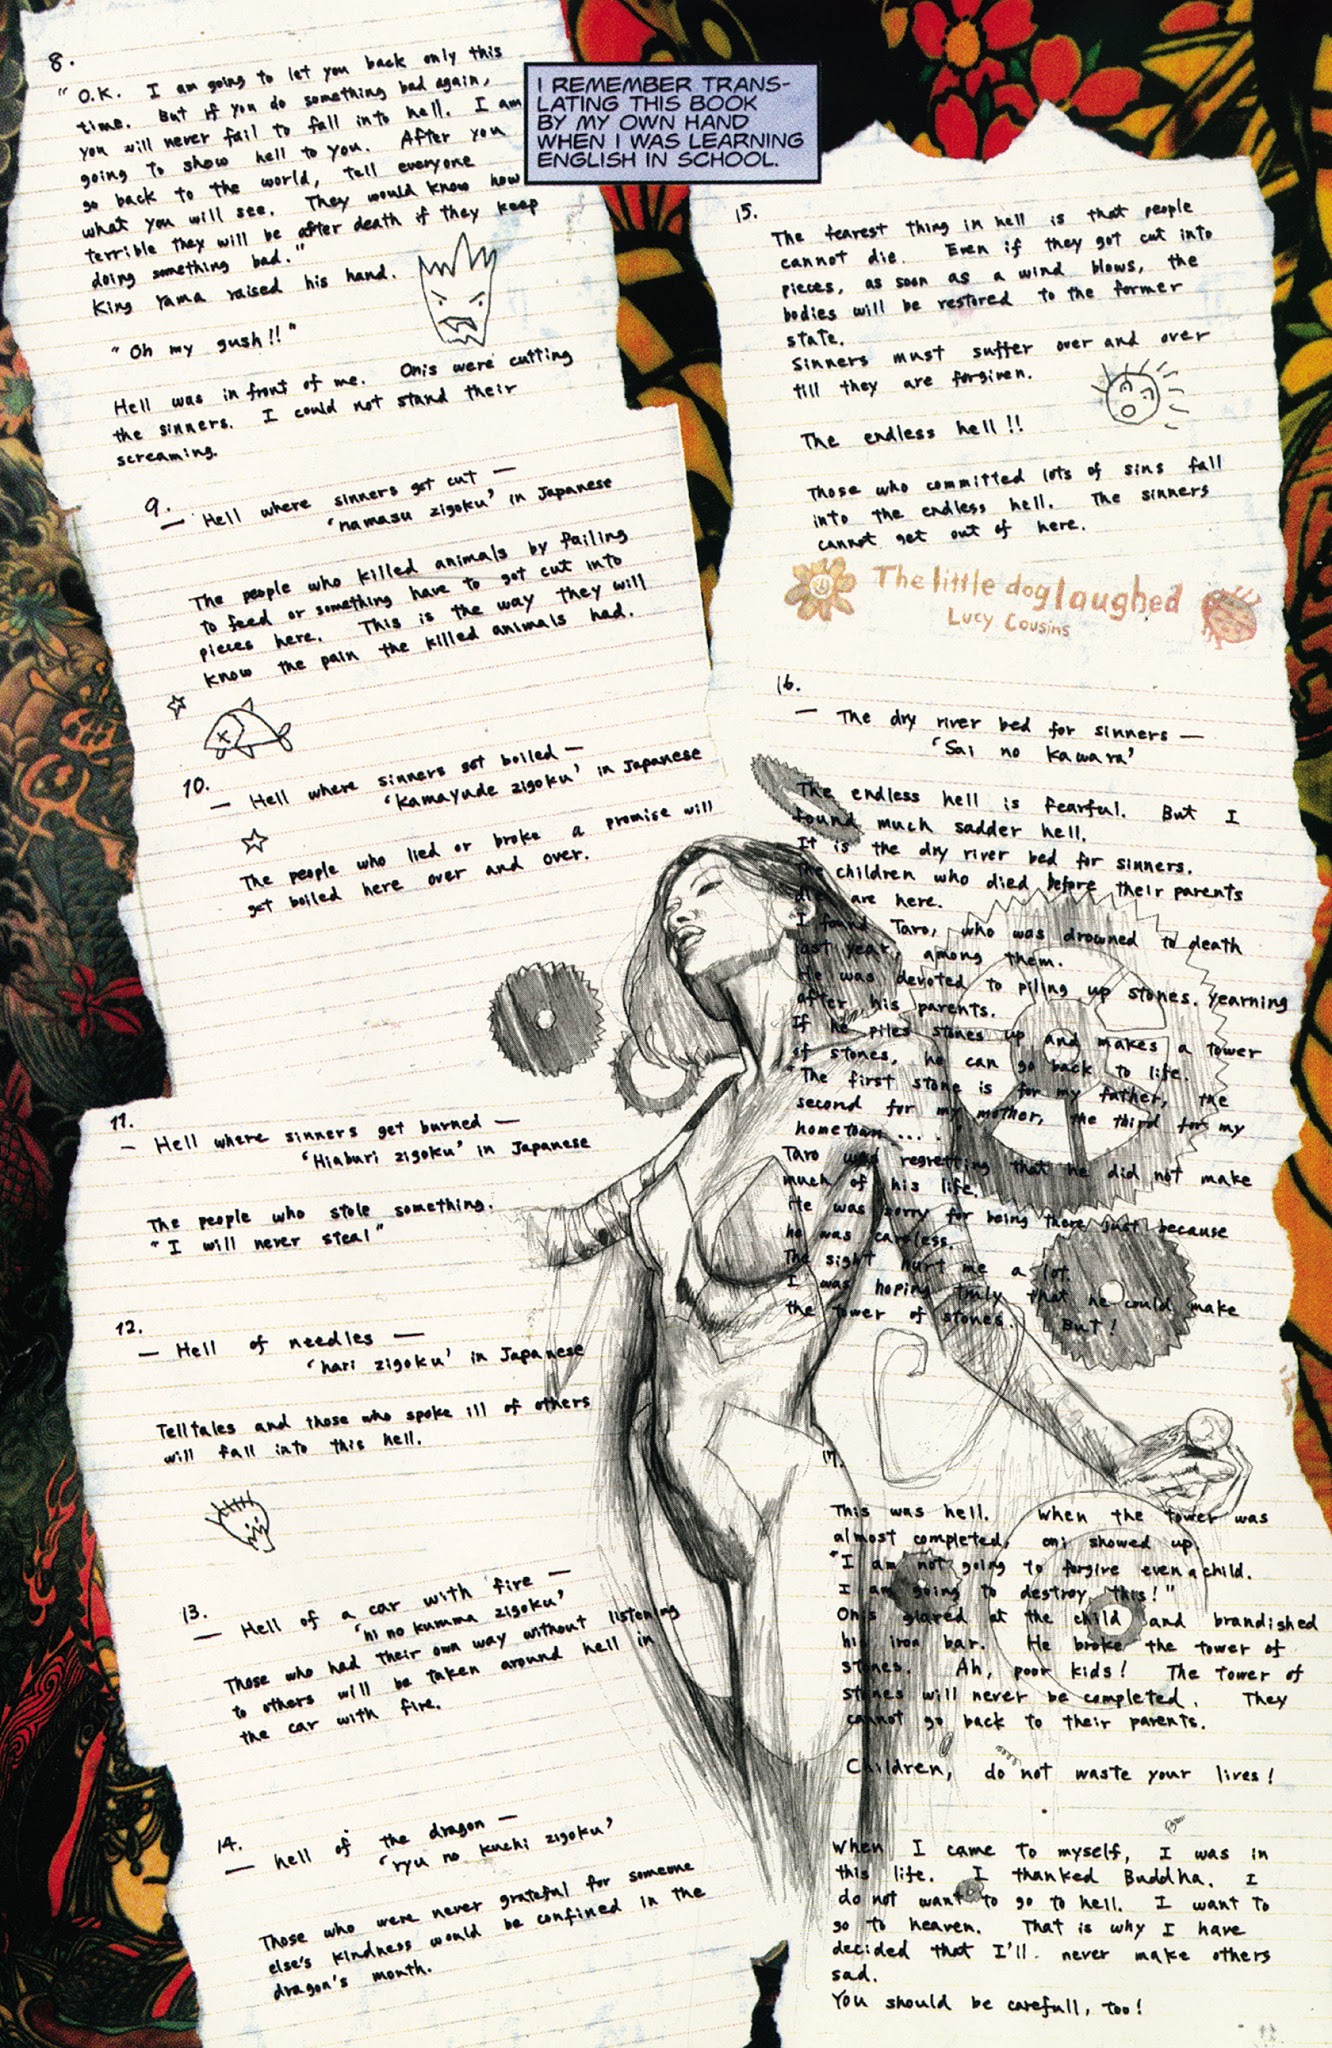 I REMEMBER TRANS-
LATING THIS BOOK
BY MY OWN HAND
WHEN I WAS LEARNING
ENGLISH IN SCHOOL.
8.
"O.K. I am going to let you back only this
time. But if you do something bad again,
you will never fail to fall into hell. I am
going to show hell to you. After you
go back to the world, tell everyone
what you will see. They would know how
terrible they will be after death if they keep
doing something bad."
King Yama raised his hand.
"Oh my gush!!"
Hell was in front of me. Onis were cutting
the sinners. I could not stand their
screaming.
9.
— Hell where sinners get cut —
'namasu zigoku' in Japanese
The people who killed animals by failing
to feed or something have to get cut into
pieces here. This is the way they will
know the pain the killed animals had.
10.
— Hell where sinners get boiled —
'kamayude zigoku' in Japanese
The people who lied or broke a promise will
get boiled here over and over.
11.
— Hell where sinners get burned —
'Hiaburi zigoku' in Japanese
The people who stole something.
"I will never steal"
12.
— Hell of needles —
'hari zigoku' in Japanese
Telltales and those who spoke ill of others
will fall into this hell.
13.
— Hell of a car with fire —
'hi no kumma zigoku'
Those who had their own way without listening
to others will be taken around hell in
the car with fire.
14.
— hell of the dragon —
'ryu no kuchi zigoku'
Those who were never grateful for someone
else's kindness would be confined in the
dragon's month.
15.
The fearest thing in hell is that people
cannot die. Even if they got cut into
pieces, as soon as a wind blows, the
bodies will be restored to the former
state.
Sinners must suffer over and over
till they are forgiven.
The endless hell!!
Those who committed lots of sins fall
into the endless hell. The sinners
cannot get out of here.
The little dog laughed
Lucy Cousins
16.
— The dry river bed for sinners —
'Sai no kawara'
The endless hell is fearful. But I
found much sadder hell.
It is the dry river bed for sinners.
The children who died before their parents
die are here.
I found Taro, who was drowned to death
last year, among them.
He was devoted to piling up stones. yearning
after his parents.
If he piles stones up and makes a tower
of stones, he can go back to life.
"The first stone is for my father, the
second for my mother, the third for my
hometown....."
Taro was regretting that he did not make
much of his life.
He was sorry for being there just because
he was careless.
The sight hurt me a lot.
I was hoping truly that he could make
the tower of stones. But!
17.
This was hell. When the tower was
almost completed, oni showed up.
"I am not going to forgive even a child.
I am going to destroy this!"
Onis glared at the child and brandished
his iron bar. He broke the tower of
stones. Ah, poor kids! The tower of
stones will never be completed. They
cannot go back to their parents.
Children, do not waste your lives!
When I came to myself, I was in
this life. I thanked Buddha. I
do not want to go to hell. I want to
go to heaven. That is why I have
decided that I'll never make others
sad.
You should be carefull, too!